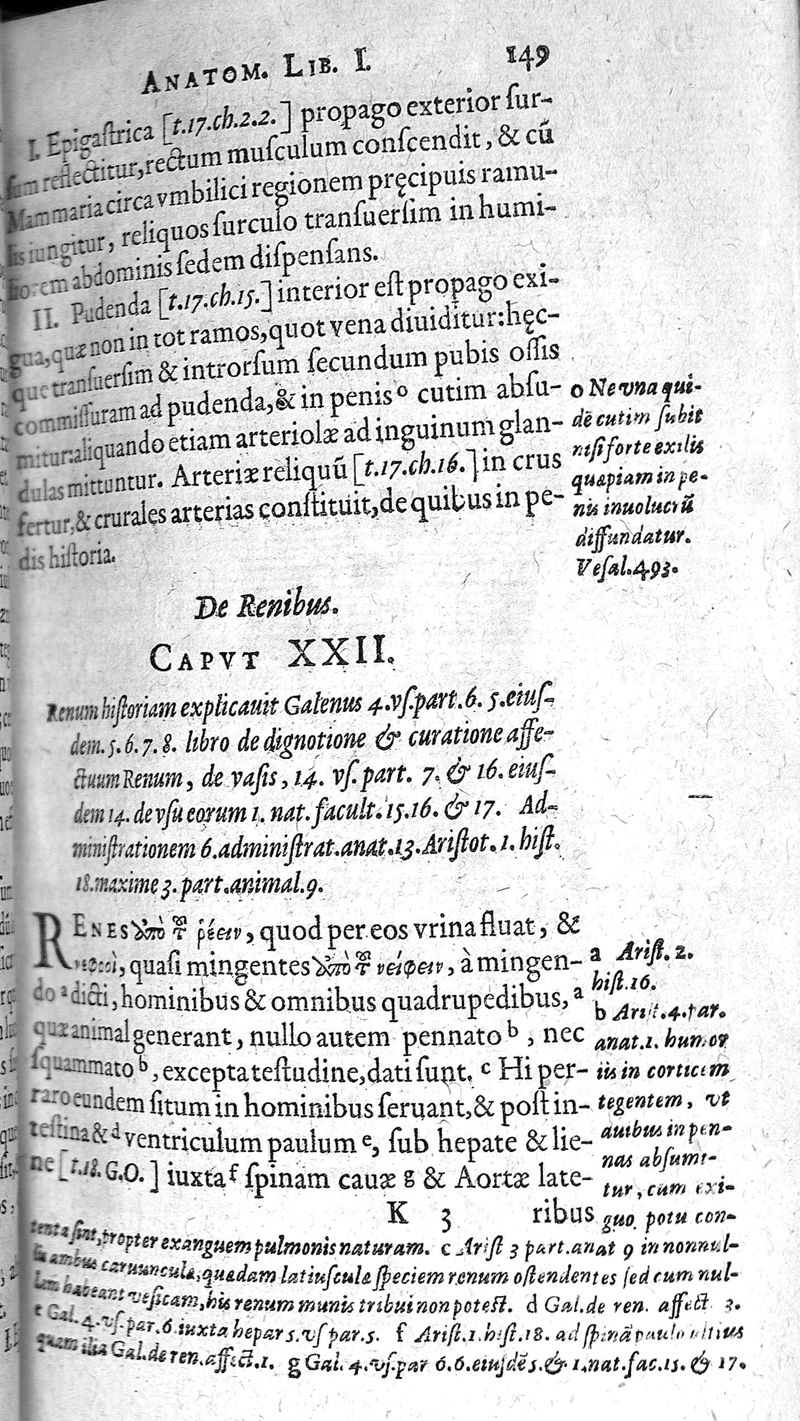 ANATOM. LIB. I. 149
I. Epigaſtrica [t.17.ch.2.2.] propago exterior ſur-
ſum reflectitur, rectum muſculum conſcendit, & cũ
Mammaria circa vmbilici regionem pręcipuis ramu-
lis iungitur, reliquos ſurculo tranſuerſim in humi-
liorem abdominis ſedem diſpenſans.
II. Pudenda [t.17.ch.15.] interior eſt propago exi-
gua, quæ non in tot ramos, quot vena diuiditur: hęc-
que tranſuerſim & introrſum ſecundum pubis oſſis
commiſſuram ad pudenda, & in penis o cutim abſu-
mitur: aliquando etiam arteriolæ ad inguinum glan-
dulas mittuntur. Arteriæ reliquũ [t.17.ch.16.] in crus
fertur, & crurales arterias conſtituit, de quibus in pe-
dis hiſtoria.
o Ne vna qui-
dẽ cutim ſubit
niſi forte exilis
quæpiam in pe-
nis inuolucrũ
diffundatur.
Veſal.493.
De Renibus.
CAPVT XXII.
Renum hiſtoriam explicauit Galenus 4. vſ. part. 6. 5. eiuſ-
dem. 5. 6. 7. 8. libro de dignotione & curatione affe-
ctuum Renum, de vaſis, 14. vſ. part. 7. & 16. eiuſ-
dem 14. de vſu eorum 1. nat. facult. 15. 16. & 17. Ad-
miniſtrationem 6. adminiſtrat. anat. 13. Ariſtot. 1. hiſt.
18. maxime 3. part. animal. 9.
RENES ἀπὸ τ῀ ῥέειν, quod per eos vrina fluat, &
νεφροὶ, quaſi mingentes ἀπὸ τ῀ νείφειν, à mingen-
do a dicti, hominibus & omnibus quadrupedibus, a
quæ animal generant, nullo autem pennato b, nec
ſquammato b, excepta teſtudine, dati ſunt. c Hi per-
raro eundem ſitum in hominibus ſeruant, & poſt in-
teſtina & d ventriculum paulum e, ſub hepate & lie-
ne [t.18. G.O.] iuxta f ſpinam cauæ g & Aortæ late-
K 3 ribus
a Ariſt. 2.
hiſt. 16.
b Ariſt. 4. par.
anat. 1. humor
iis in corticem
tegentem, vt
auibus in pen-
nas abſumi-
tur, cum exi-
guo potu con-
tenta ſint, propter exanguem pulmonis naturam. c Ariſt 3 part. anat 9 in nonnul-
lis ambus caruuncula, quædam latiuſcula ſpeciem renum oſtendentes ſed cum nul-
lam habeant veſicam, his renum munis tribui non poteſt. d Gal. de ren. affect 3.
e Gal. 4. vſ. par. 6. iuxta hepar 5. vſ par 5. f Ariſt. 1. hiſt. 18. ad ſpinã paulo vltius
quam ilia Gal. de ren. affect. 1. g Gal. 4. vſ. par 6. 6. eiuſdẽ 5. & 1. nat. fac. 15. & 17.